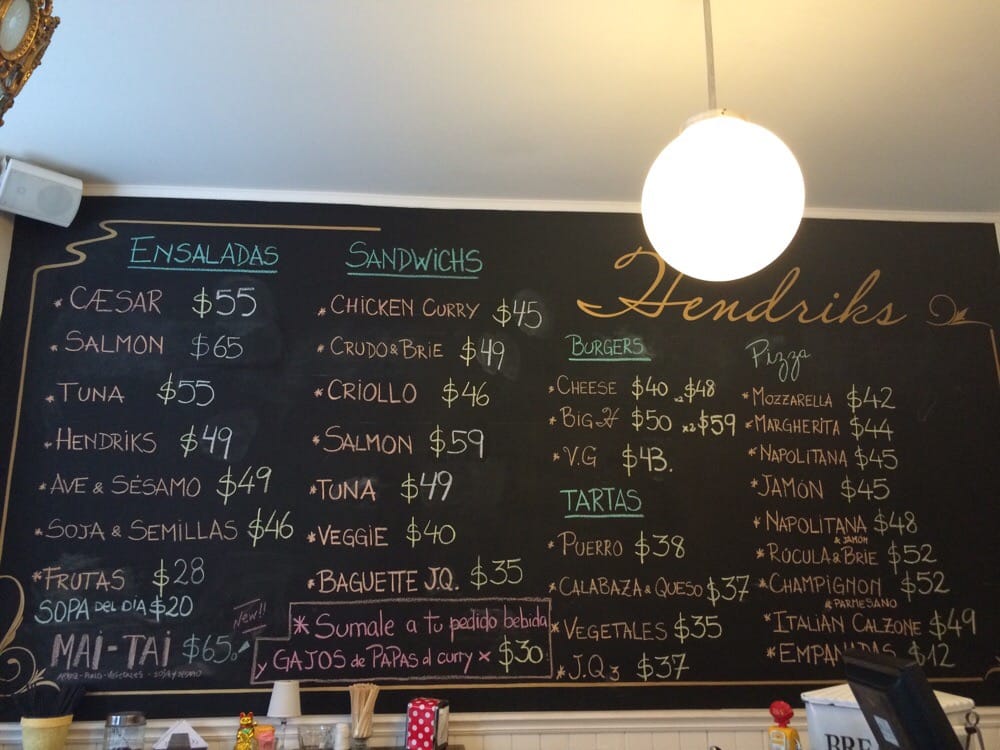 ENSALADAS
* CÆSAR $55
* SALMON $65
* TUNA $55
* HENDRIKS $49
* AVE & SÉSAMO $49
* SOJA & SEMILLAS $46
* FRUTAS $28
SOPA DEL DIA $20
New!!
MAI-TAI $65.
SANDWICHS
* CHICKEN CURRY $45
* CRUDO & BRIE $49
* CRIOLLO $46
* SALMON $59
* TUNA $49
* VEGGIE $40
* BAGUETTE J.Q. $35
* Sumale a tu pedido bebida
y GAJOS de PAPAS al curry x $30
Hendriks
BURGERS
* CHEESE $40 x2 $48
* BIG H $50 x2 $59
* V.G $43.
TARTAS
* PUERRO $38
* CALABAZA & QUESO $37
* VEGETALES $35
* J.Q $37
Pizza
* MOZZARELLA $42
* MARGHERITA $44
* NAPOLITANA $45
* JAMÓN $45
* NAPOLITANA $48
& JAMON
* RÚCULA & BRIE $52
* CHAMPIGNON $52
& PARMESANO
* ITALIAN CALZONE $49
* EMPANADAS $12